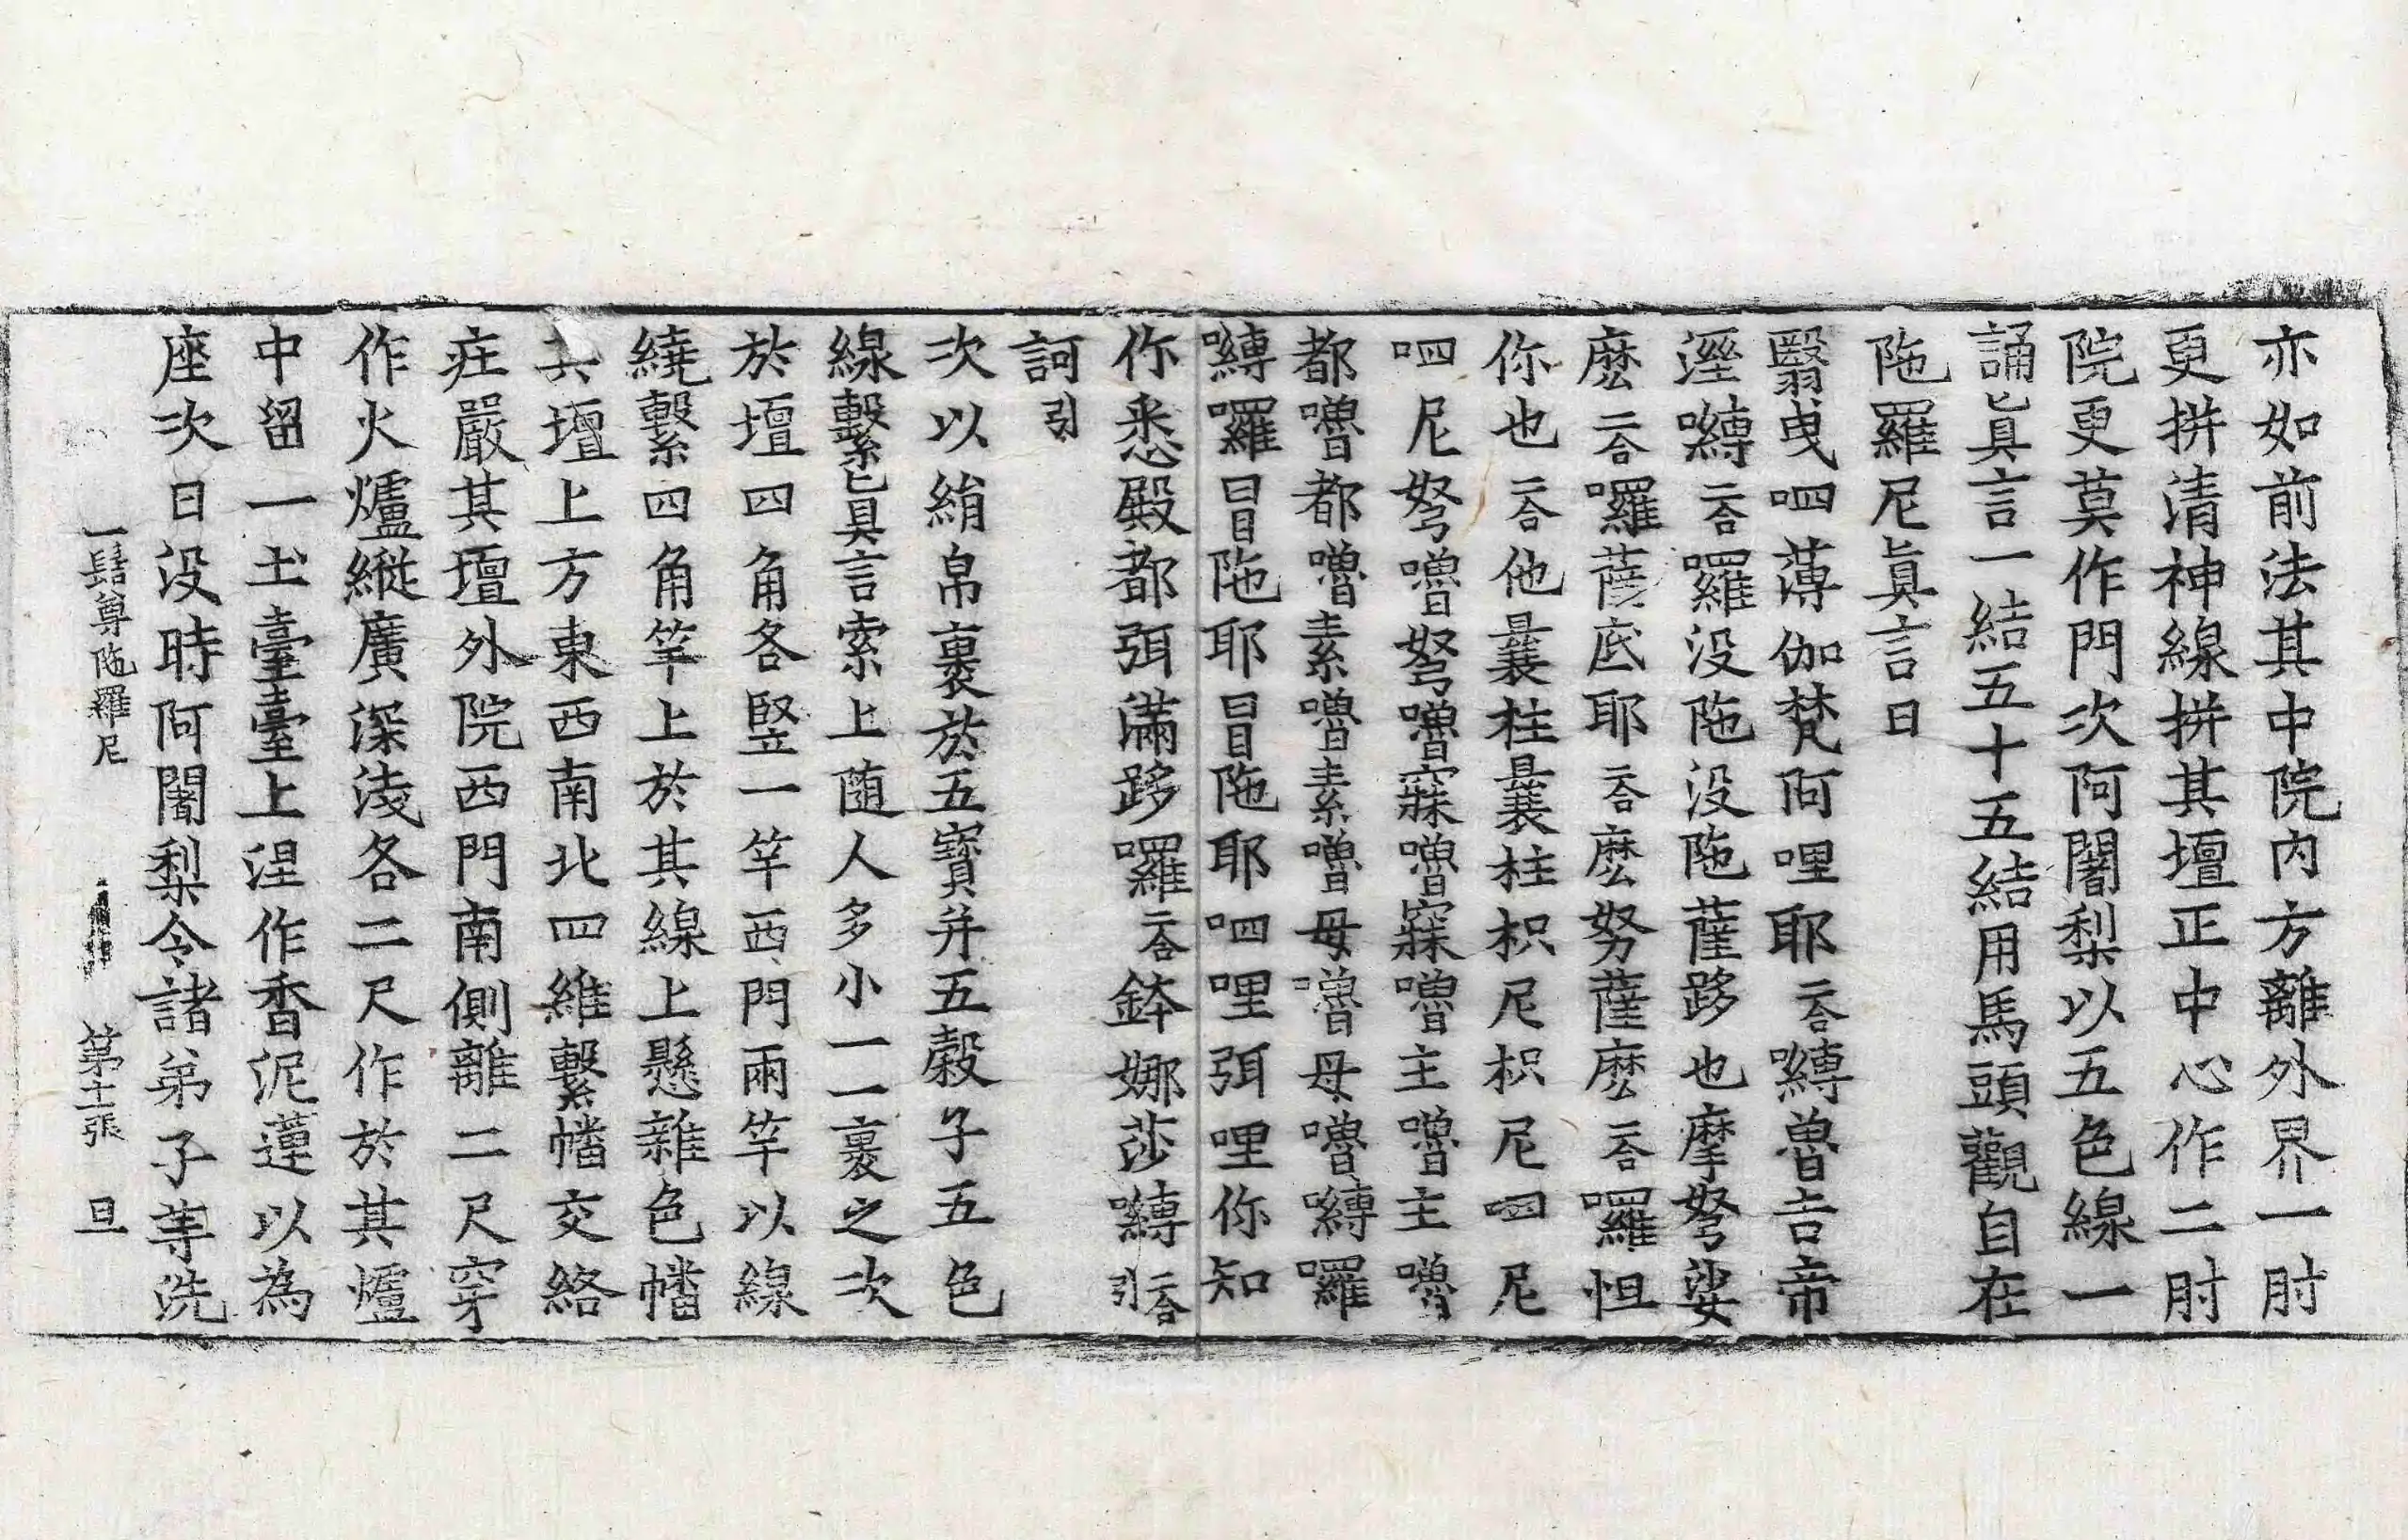 亦如前法其中院内方離外界一肘
更拼清神線拼其壇正中心作二肘
院更莫作門次阿闍梨以五色線一
誦眞言一結五十五結用馬頭觀自在
陁羅尼眞言曰
翳曳呬薄伽梵阿哩耶二合嚩魯吉帝
溼嚩二合羅没陁没陁薩跢也摩弩娑
麽二合囉薩底耶二合麽努薩麽二合囉怛
你也二合他曩柱曩柱枳尼枳尼呬尼
呬尼弩嚕弩嚕寐嚕寐嚕主嚕主嚕
都嚕都嚕素嚕素嚕母嚕母嚕嚩囉
嚩囉冒陁耶冒陁耶呬哩弭哩你知
你悉殿都弭滿跢囉二合鉢娜莎嚩二合引
訶引
次以絹帛裹於五寶并五穀子五色
線繫已眞言索上随人多小一一裹之次
於壇四角各竪一竿西門兩竿以線
繞繫四角竿上於其線上懸雜色幡
其壇上方東西南北四維繫幡交絡
庄嚴其壇外院西門南側離二尺穿
作火爐縱廣深淺各二尺作於其爐
中留一土臺臺上涅作香泥蓮以為
座次日没時阿闍梨令諸弟子等洗
一髻尊陁羅尼 第十一張 旦